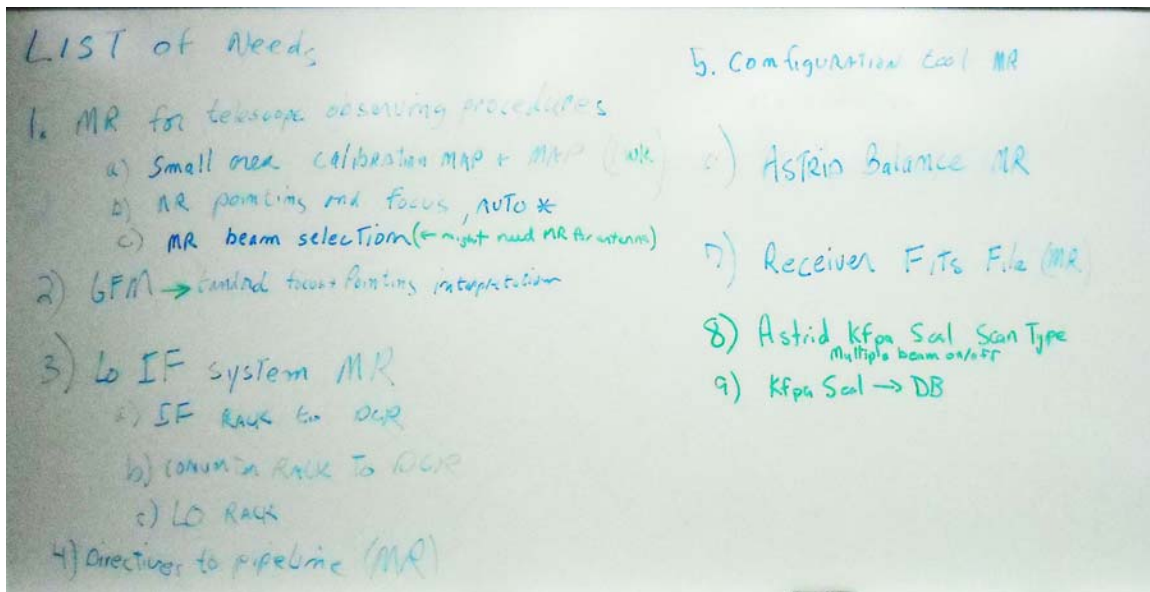 LIST of Needs
1. MR for telescope observing procedures
a) Small area calibration MAP + MAP
b) MR pointing and focus, AUTO *
c) MR beam selection (← might need MR for antenna)
2) GFM → focus + Pointing interpretation
3) Lo IF system MR
a) IF RACK to DCR
b) RACK To DCR
c) LO RACK
4) Directives to pipeline (MR)
5. Configuration tool MR
) ASTRID Balance MR
7) Receiver FITS File (MR)
8) Astrid Kfpa Scal Scan Type
Multiple beam on/off
9) Kfpa Scal → DB